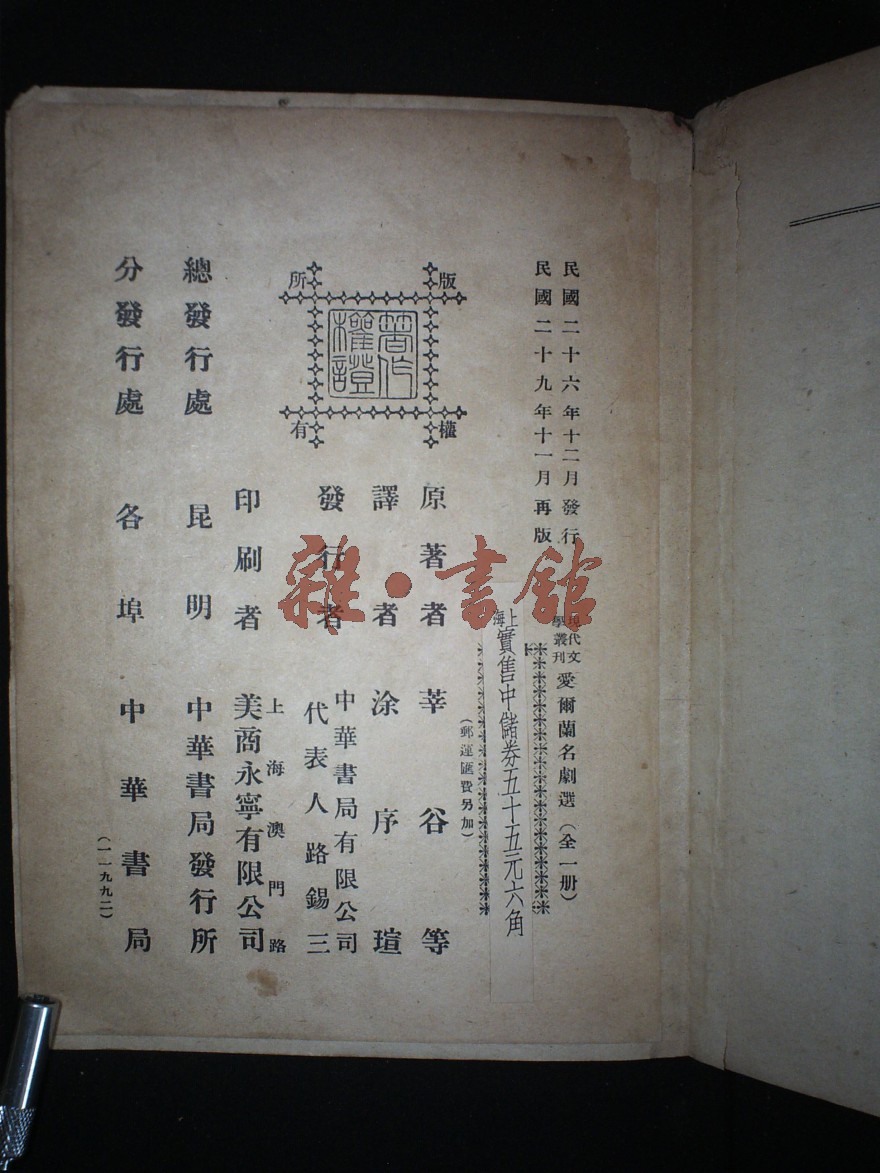 民國二十六年十二月發行
民國二十九年十一月再版
現代文學叢刊 愛爾蘭名劇選（全一册）
上海實售中儲券五十五元六角
（郵運匯費另加）
版權所有
著作權證
原著者 莘谷等
譯者 涂序瑄
發行者 中華書局有限公司
代表人路錫三
印刷者 上海澳門路
美商永寧有限公司
總發行處 昆明 中華書局發行所
分發行處 各埠 中華書局
（一一九九二）
雜·書館